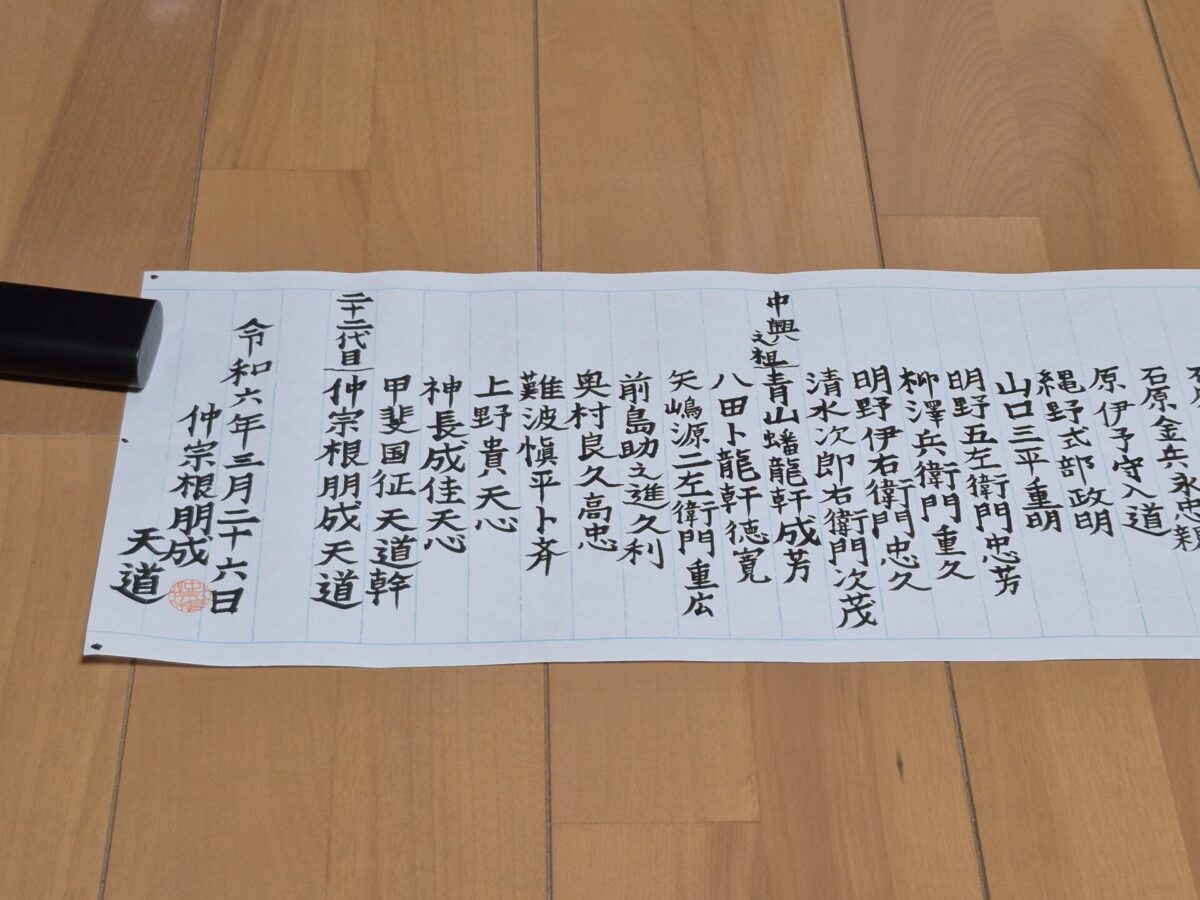 石原金兵永忠親
原伊予守入道
縄野式部政明
山口三平重明
明野五左衛門忠芳
柳澤兵衛門重久
明野伊右衛門忠久
清水次郎右衛門次茂
中興之祖青山蟠龍軒成芳
八田卜龍軒徳寛
矢嶋源二左衛門重広
前島助之進久利
奥村良久高忠
難波慎平卜斉
上野貴天心
神長成佳天心
甲斐国征天道幹
二十二代目仲宗根朋成天道
令和六年三月二十六日
仲宗根朋成
天道